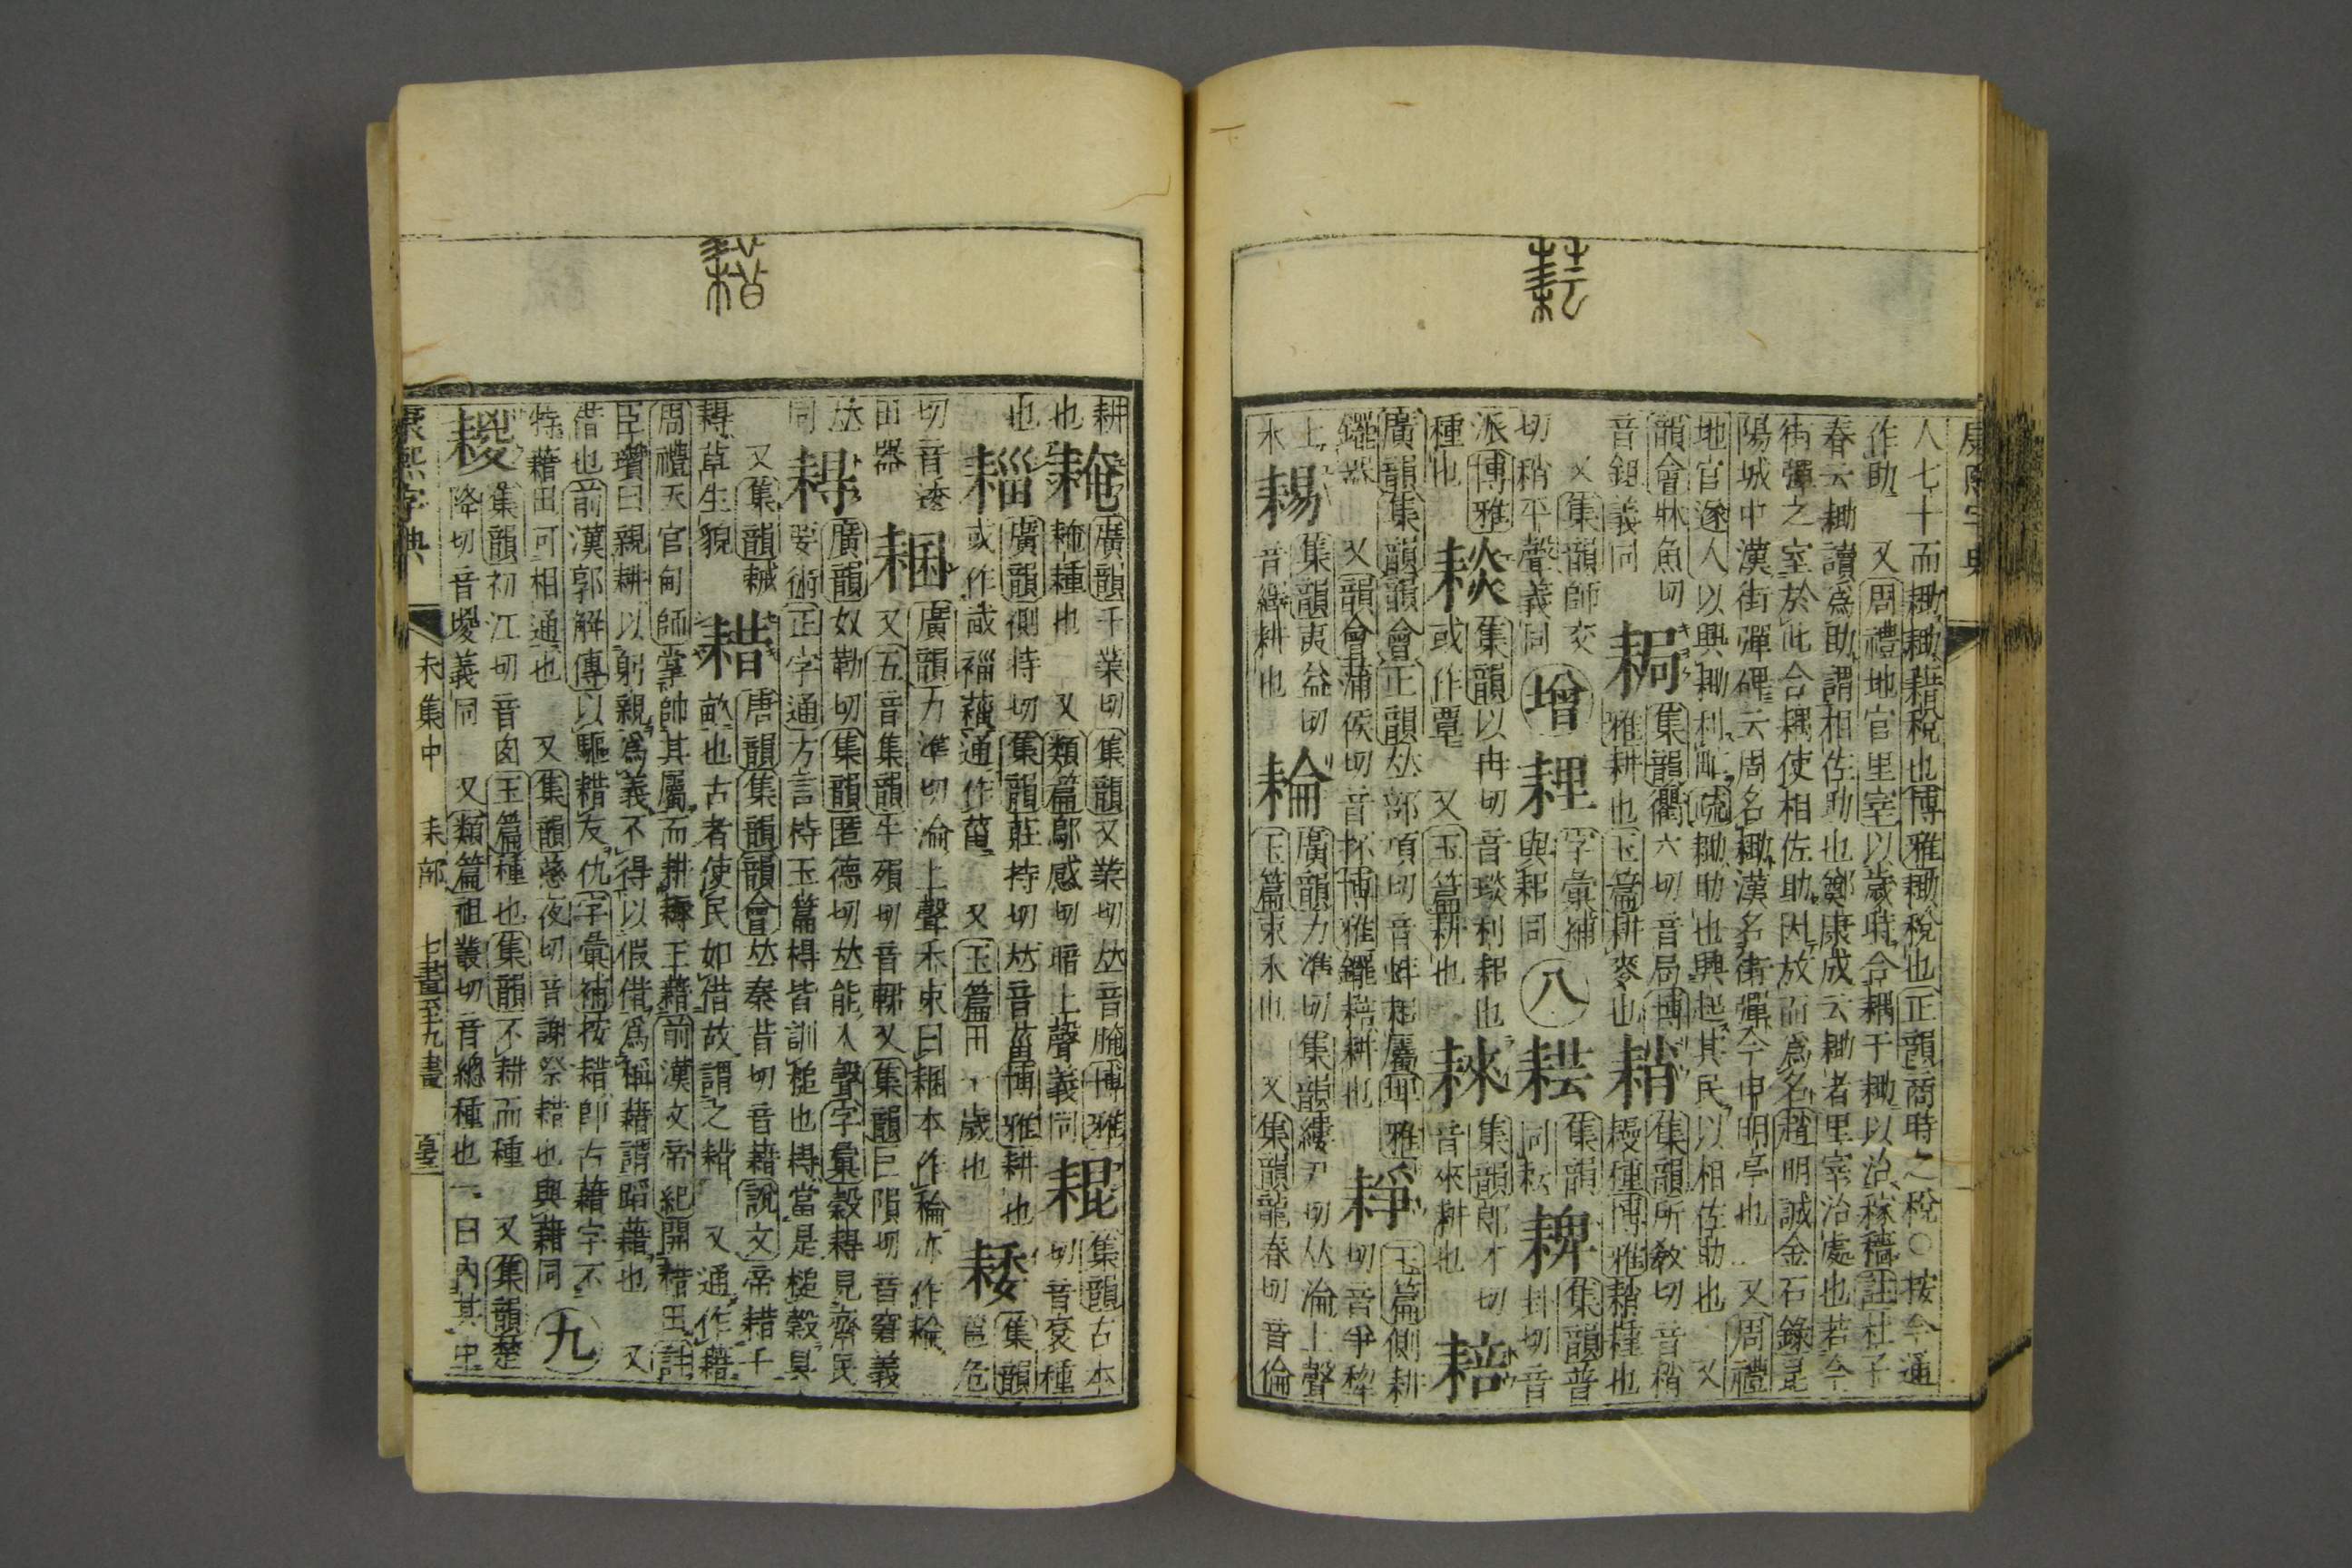 康熙字典
人七十而耡耡耤稅也博雅耡稅也正韻商時之稅○按今通
作助 又周禮地官里宰以歲時合耦于耡以治稼穡註杜子
春云耡讀爲助謂相佐助也鄭康成云耡者里宰治處也若今
街彈之室於此合耦使相佐助因放而爲名趙明誠金石錄昆
陽城中漢街彈碑云周名耡漢名街彈今申明亭也 又周禮
地官遂人以興耡利甿疏耡助也興起其民以相佐助也 又
韻會牀魚切 集韻衢六切音局博 集韻所敎切音稍
音鉏義同 雅耕也玉篇耕麥也 種博雅 種也
又集韻師交 增 字彙補 八 集韻 集韻普
切稍平聲義同 與耜同 同耘 卦切音
派博雅 集韻以冉切音琰利耜也 集韻郎才切
種也 或作覃 又玉篇耕也 音來耕也 耪
廣韻集韻韻會正韻𠀤部項切音蚌耜屬埤雅 玉篇側耕
䥯器 又韻會蒲侯切音抔博雅䥯 耕也 切音爭犂
上 集韻夷益切 耣 廣韻力準切集韻縷尹切𠀤淪上聲
禾 音繹耕也 玉篇束禾也 又集韻龍春切音倫
耕 廣韻千業切集韻又業切𠀤音腌博雅 集韻古本
也 種也 又類篇鄔感切暗上聲義同 切音袞種
也 廣韻側持切集韻莊持切𠀤音菑博雅耕也 集韻
或作 通作菑 又玉篇田一歲也 邕危
切音逶 廣韻力準切淪上聲禾束曰 本作稐亦作耣
田器 又五音集韻牛殞切音輑又集韻巨隕切音窘義
𠀤 廣韻奴勒切集韻匿德切𠀤能入聲字彙穀 見齊民
同 要術正字通方言 玉篇 皆訓槌也 當是槌穀具
又集韻 耤 唐韻集韻韻會𠀤秦昔切音藉說文帝耤千
草生貌 畝也古者使民如借故謂之耤 又通作藉
周禮天官甸師掌帥其屬而耕耨王藉前漢文帝紀開耤田註
臣瓚曰親耕以躬親爲義不得以假借爲稱藉謂蹈藉也 又
借也前漢郭解傳以軀耤友仇字彙補按耤卽古藉字不
特藉田可相通也 又集韻慈夜切音謝祭耤也與藉同 九
集韻初江切音囪玉篇種也集韻不耕而種 又集韻楚
降切音 義同 又類篇祖叢切音總種也一曰內其中
康熙字典 未集中 耒部 七畫至九畫